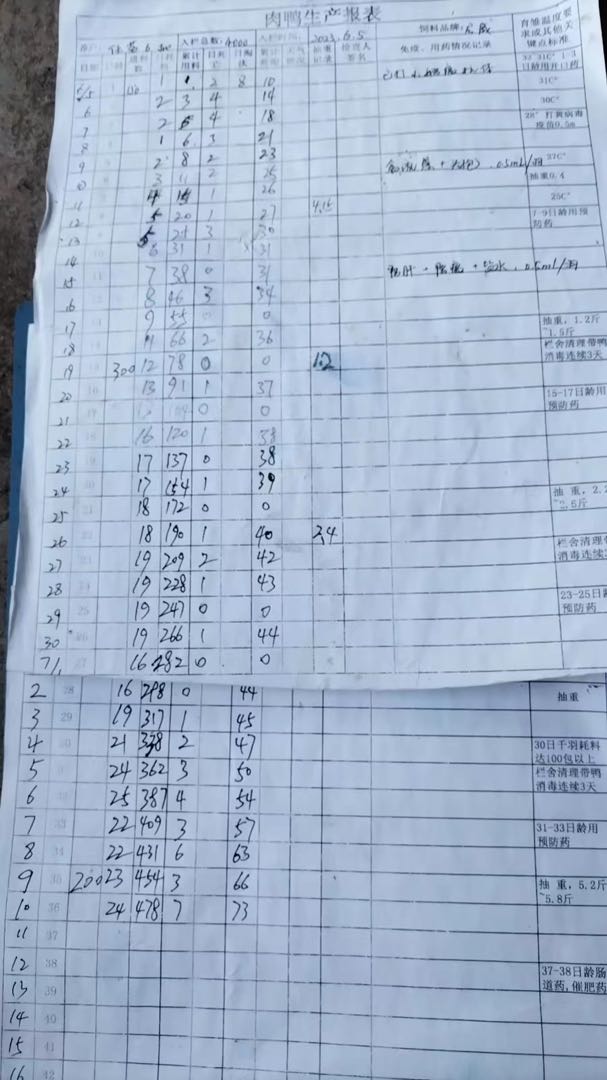 肉鸭生产报表
入栏总数: 4000 入栏时间: 2023.6.5 饲料品牌: 育雏温度要求或其他关键点标准
日龄 累计用料 免疫、用药情况记录
6/5 1 1 2 8 10 32
6 2 3 4 14 31C°
7 2 5 4 18 30C°
8 1 6 3 21 28° 打黄病毒疫苗0.5m
9 2 8 2 23
10 3 11 2 25 27C° 抽重0.4
11 4 15 1 26 25C°
12 5 20 1 27 4.15 7-9日龄用预防药
13 5 25 3 30
14 6 31 1 31
15 7 38 0 31
16 8 46 3 34
17 9 55 0 0 抽重, 1.2斤~1.5斤
18 11 66 2 36 栏舍清理带鸭消毒连续3天
19 300 12 78 0 0 1.2
20 13 91 1 37 15-17日龄用预防药
21 104 0 0
22 16 120 1 38
23 17 137 0 38
24 17 154 1 39
25 18 172 0 0 抽重, 2.
26 18 190 1 40 2.4
27 19 209 2 42 栏舍清理带 消毒连续
28 19 228 1 43
29 19 247 0 0 23-25日龄 预防药
30 19 266 1 44
7/1 16 282 0 0
2 28 16 298 0 44 抽重
3 29 19 317 1 45
4 30 21 338 2 47 30日千羽耗料达100包以上
5 24 362 3 50 栏舍清理带鸭消毒连续3天
6 25 387 4 54
7 33 22 409 3 57 31-33日龄用预防药
8 34 22 431 6 63
9 35 200 23 454 3 66 抽重, 5.2斤~5.8斤
10 36 24 478 7 73
11 37
12 38 37-38日龄肠道药,催肥药
13 39
14 40
15 41
16 42